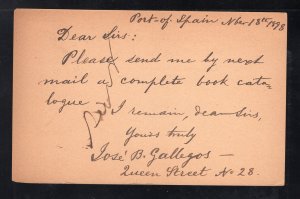 Port-of Spain Nov. 18th 1898
Dear Sirs:
Please send me by next
mail a complete book cata-
logue - I remain, dear sirs,
Yours truly
José B. Gallegos -
Queen Street No 28.